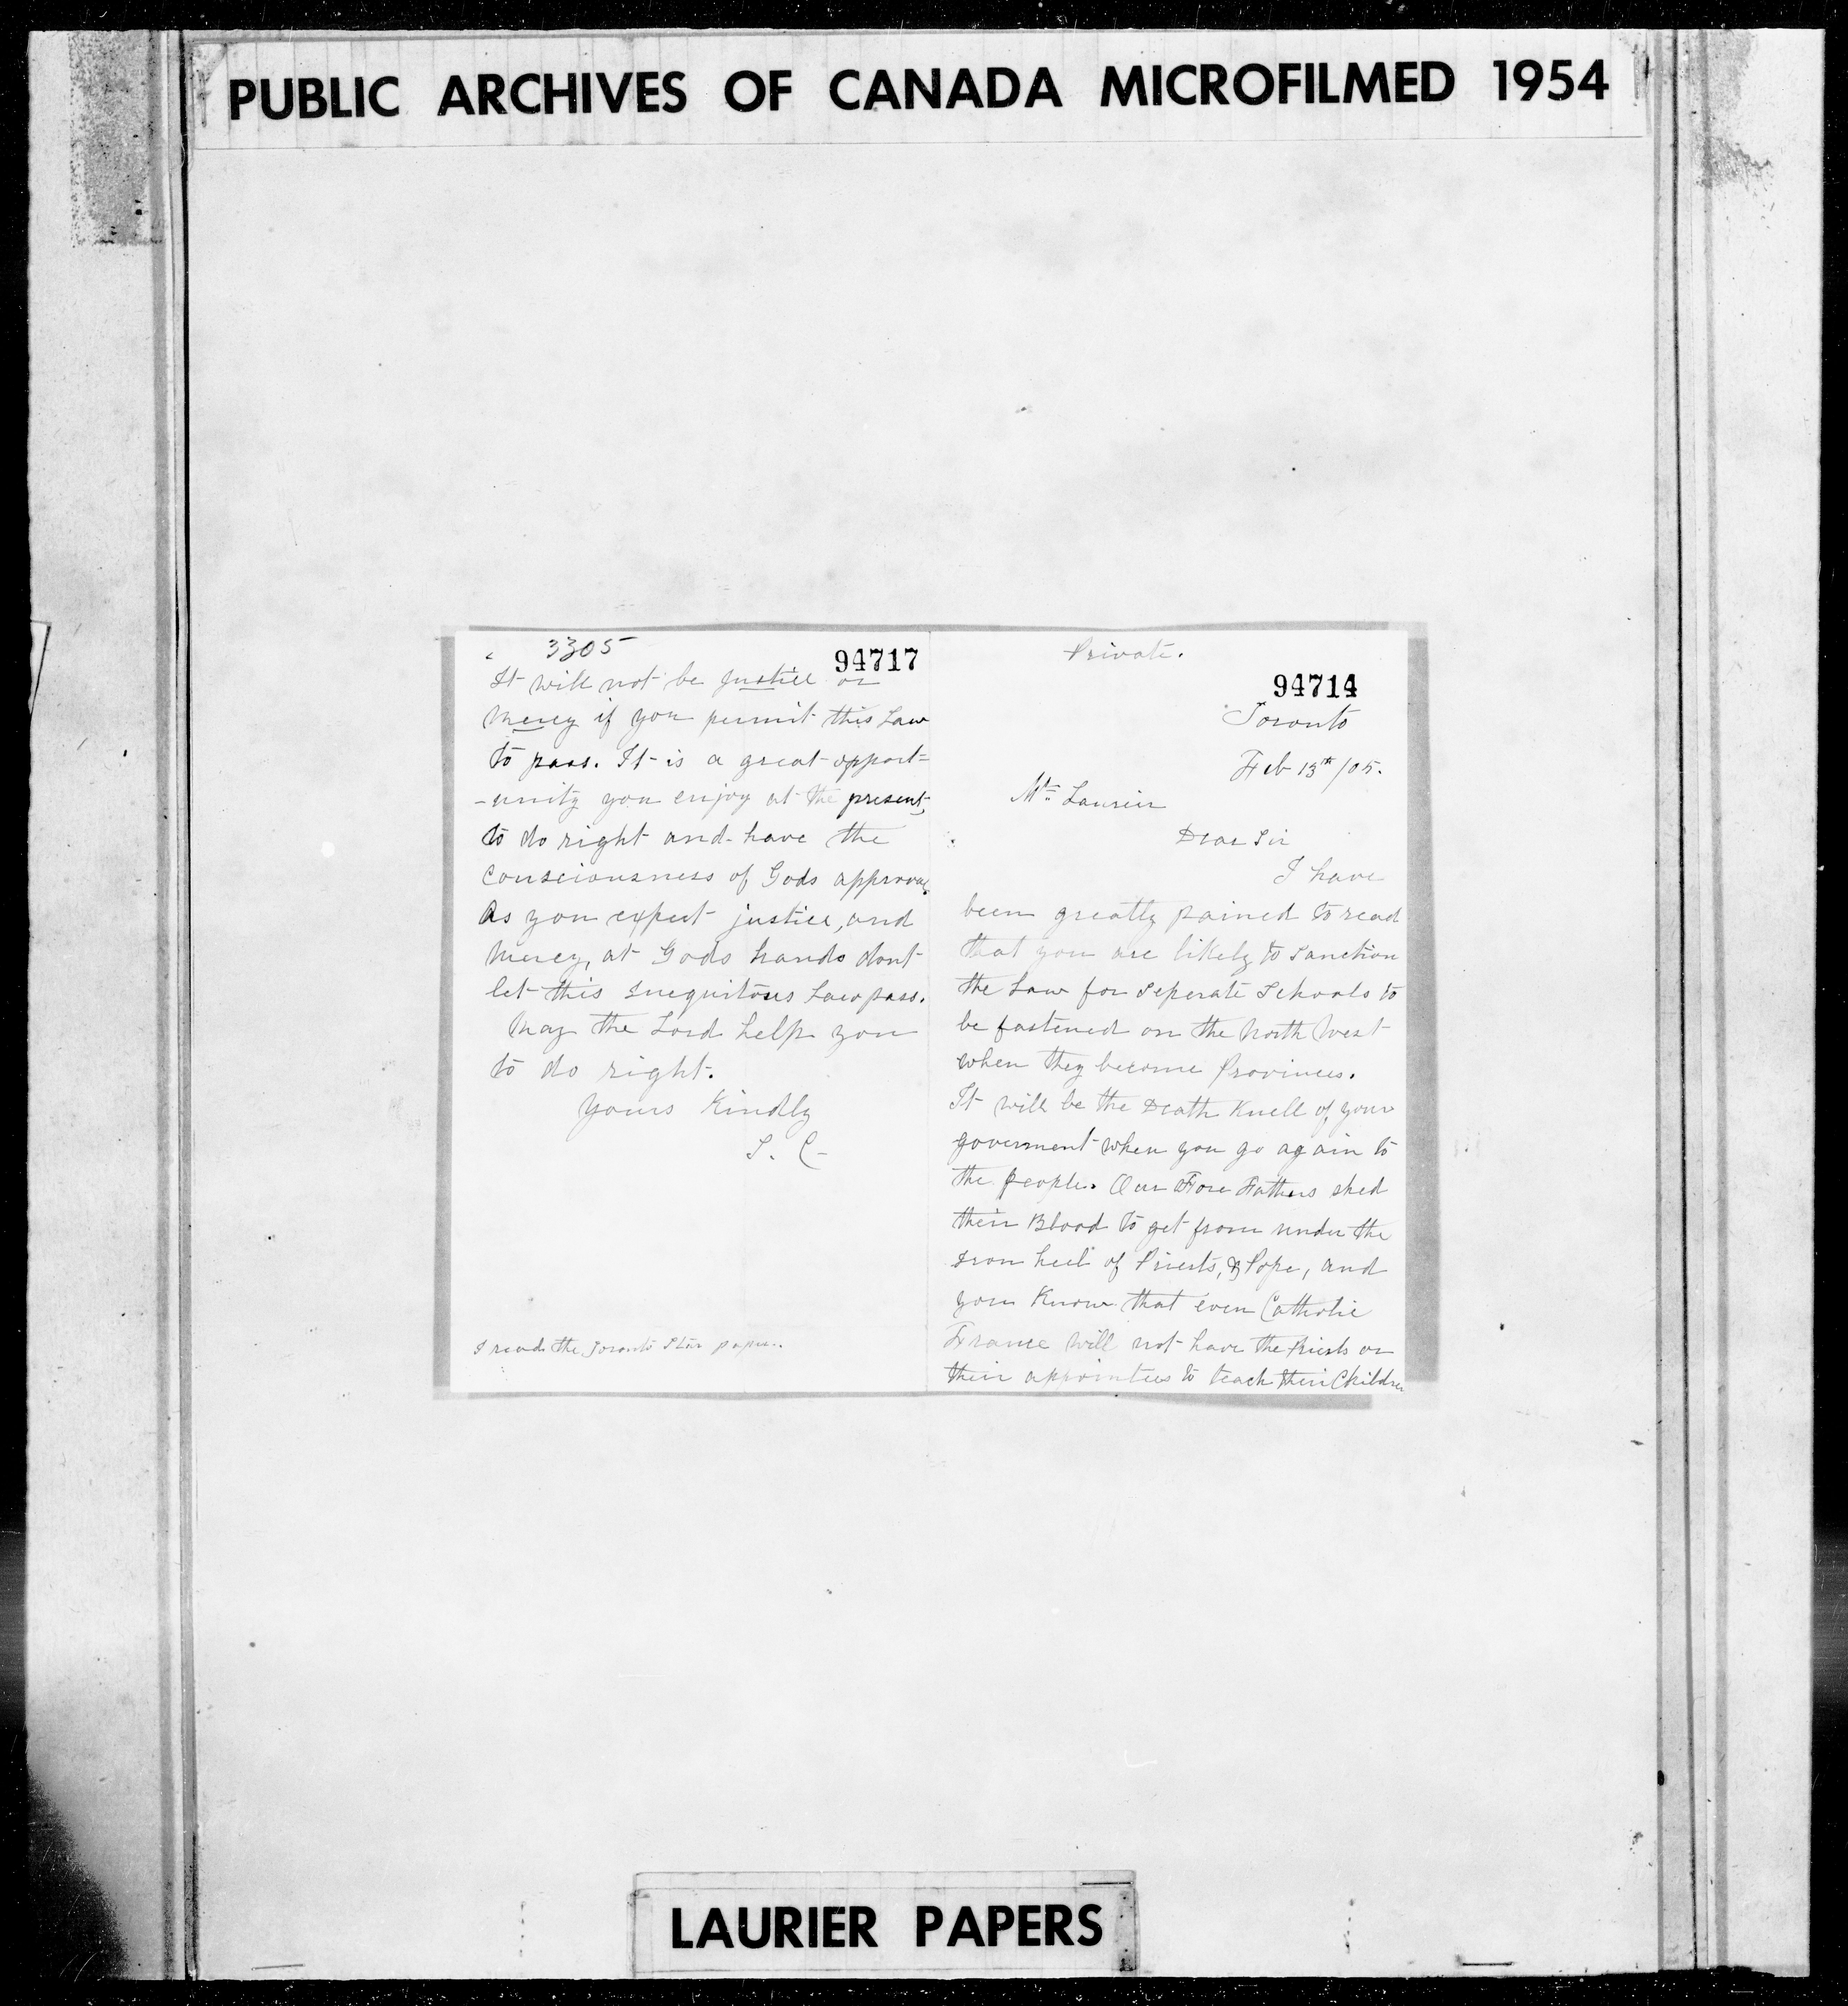 PUBLIC ARCHIVES OF CANADA MICROFILMED 1954
3305
94717
It will not be justice or
mercy if you permit this Law
to pass. It is a great opport=
-unity you enjoy at the present,
to do right and have the
Consciousness of Gods approval.
As you expect justice, and
mercy, at Gods hands dont
let this Inequitous Law pass.
May the Lord help you
to do right.
Yours Kindly
S. C
I read the Toronto Star paper.
Private.
94714
Toronto
Feb 13th /05.
Mr. Laurier
Dear Sir
I have
been greatly pained to read
that you are likely to Sanction
the Law for Seperate Schools to
be fastened on the North West
when they become Provinces.
It will be the Death Knell of your
goverment when you go again to
the people. Our Fore Fathers shed
their Blood to get from under the
Iron heel of Priests, & Pope, and
you Know that even Catholic
France will not have the Priests or
their appointees to teach their Children
LAURIER PAPERS